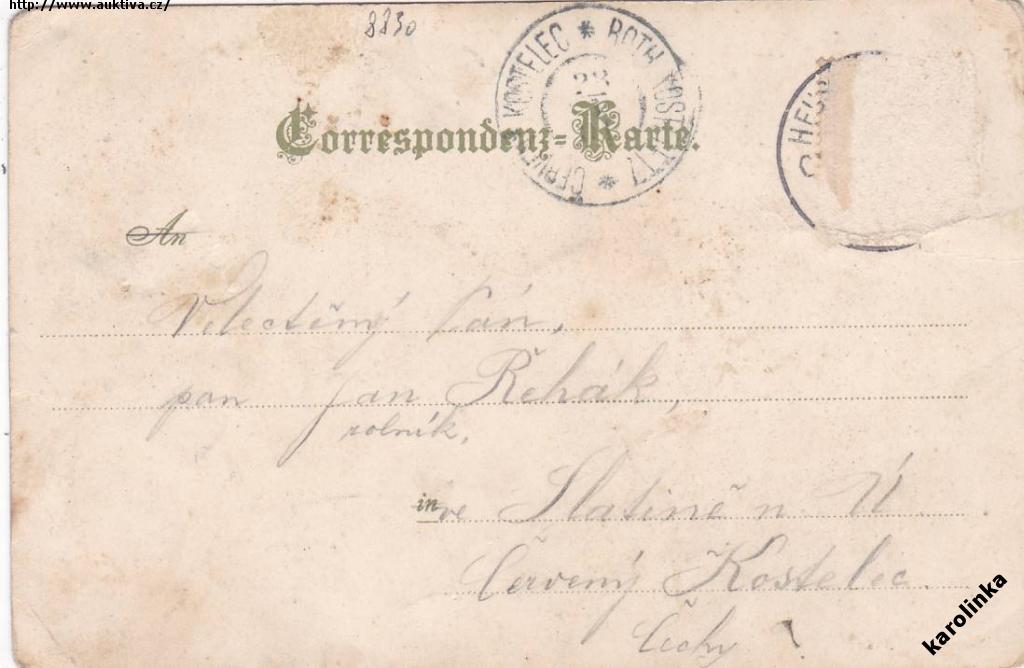 http://www.auktiva.cz/
8830
ČERVENÝ KOSTELEC * ROTH KOSTELETZ *
Correspondenz-Karte.
An
Velectěný Pán,
pan Jan Řehák,
rolník,
in ve Slatině n Ú
Červený Kostelec.
Čechy
karolinka